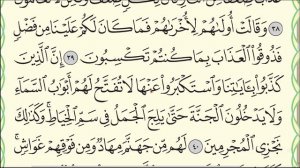 ٣٨ وَقَالَتْ أُولَىٰهُمْ لِأُخْرَىٰهُمْ فَمَا كَانَ لَكُمْ عَلَيْنَا مِن فَضْلٍ
فَذُوقُوا۟ ٱلْعَذَابَ بِمَا كُنتُمْ تَكْسِبُونَ ٣٩ إِنَّ ٱلَّذِينَ
كَذَّبُوا۟ بِـَٔايَـٰتِنَا وَٱسْتَكْبَرُوا۟ عَنْهَا لَا تُفَتَّحُ لَهُمْ أَبْوَٰبُ ٱلسَّمَآءِ
وَلَا يَدْخُلُونَ ٱلْجَنَّةَ حَتَّىٰ يَلِجَ ٱلْجَمَلُ فِى سَمِّ ٱلْخِيَاطِ ۚ وَكَذَٰلِكَ
نَجْزِى ٱلْمُجْرِمِينَ ٤٠ لَهُم مِّن جَهَنَّمَ مِهَادٌ وَمِن فَوْقِهِمْ غَوَاشٍ ۚ